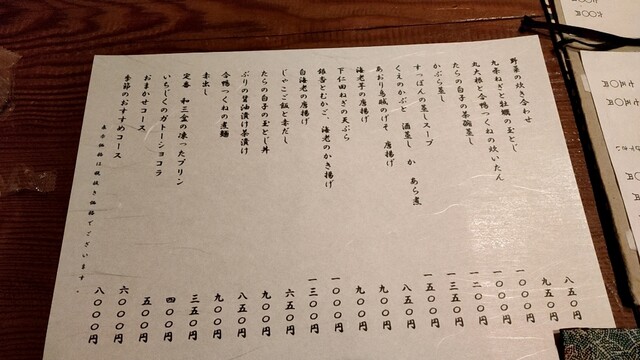 野菜の炊き合わせ 八五〇円
九条ねぎと牡蠣の玉とじ 九五〇円
丸大根と合鴨つくねの炊いたん 一〇〇〇円
たらの白子の茶碗蒸し 一〇〇〇円
かぶら蒸し 一二〇〇円
すっぽんの蒸しスープ 一三五〇円
くえのかぶと 酒蒸し か あら煮 一五〇〇円
あおり烏賊のげそ 唐揚げ 八五〇円
海老芋の唐揚げ 九〇〇円
下仁田ねぎの天ぷら 九〇〇円
銀杏とむかご、海老のかき揚げ 一〇〇〇円
白海老の唐揚げ 一三〇〇円
じゃこご飯と赤だし 六五〇円
たらの白子の玉とじ丼 九〇〇円
ぶりの醤油漬け茶漬け 八五〇円
合鴨つくねの煮麺 九〇〇円
赤出し 三五〇円
定番 和三盆の凍ったプリン 四〇〇円
いちじくのガトーショコラ 五〇〇円
おまかせコース 六〇〇〇円
季節のおすすめコース 八〇〇〇円
表示価格は税抜き価格でございます。